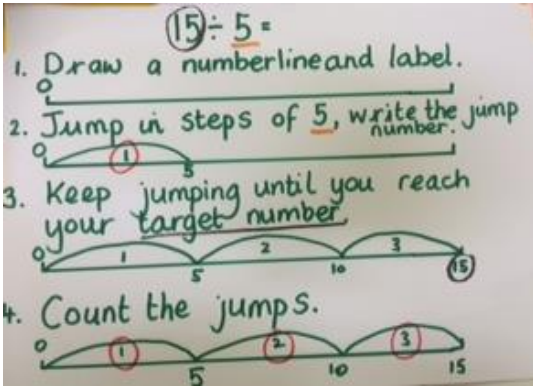 15 ÷ 5 =
1. Draw a numberline and label.
0
2. Jump in steps of 5, write the jump number.
0 1 5
3. Keep jumping until you reach
your target number.
0 1 5 2 10 3 15
4. Count the jumps.
0 1 5 2 10 3 15